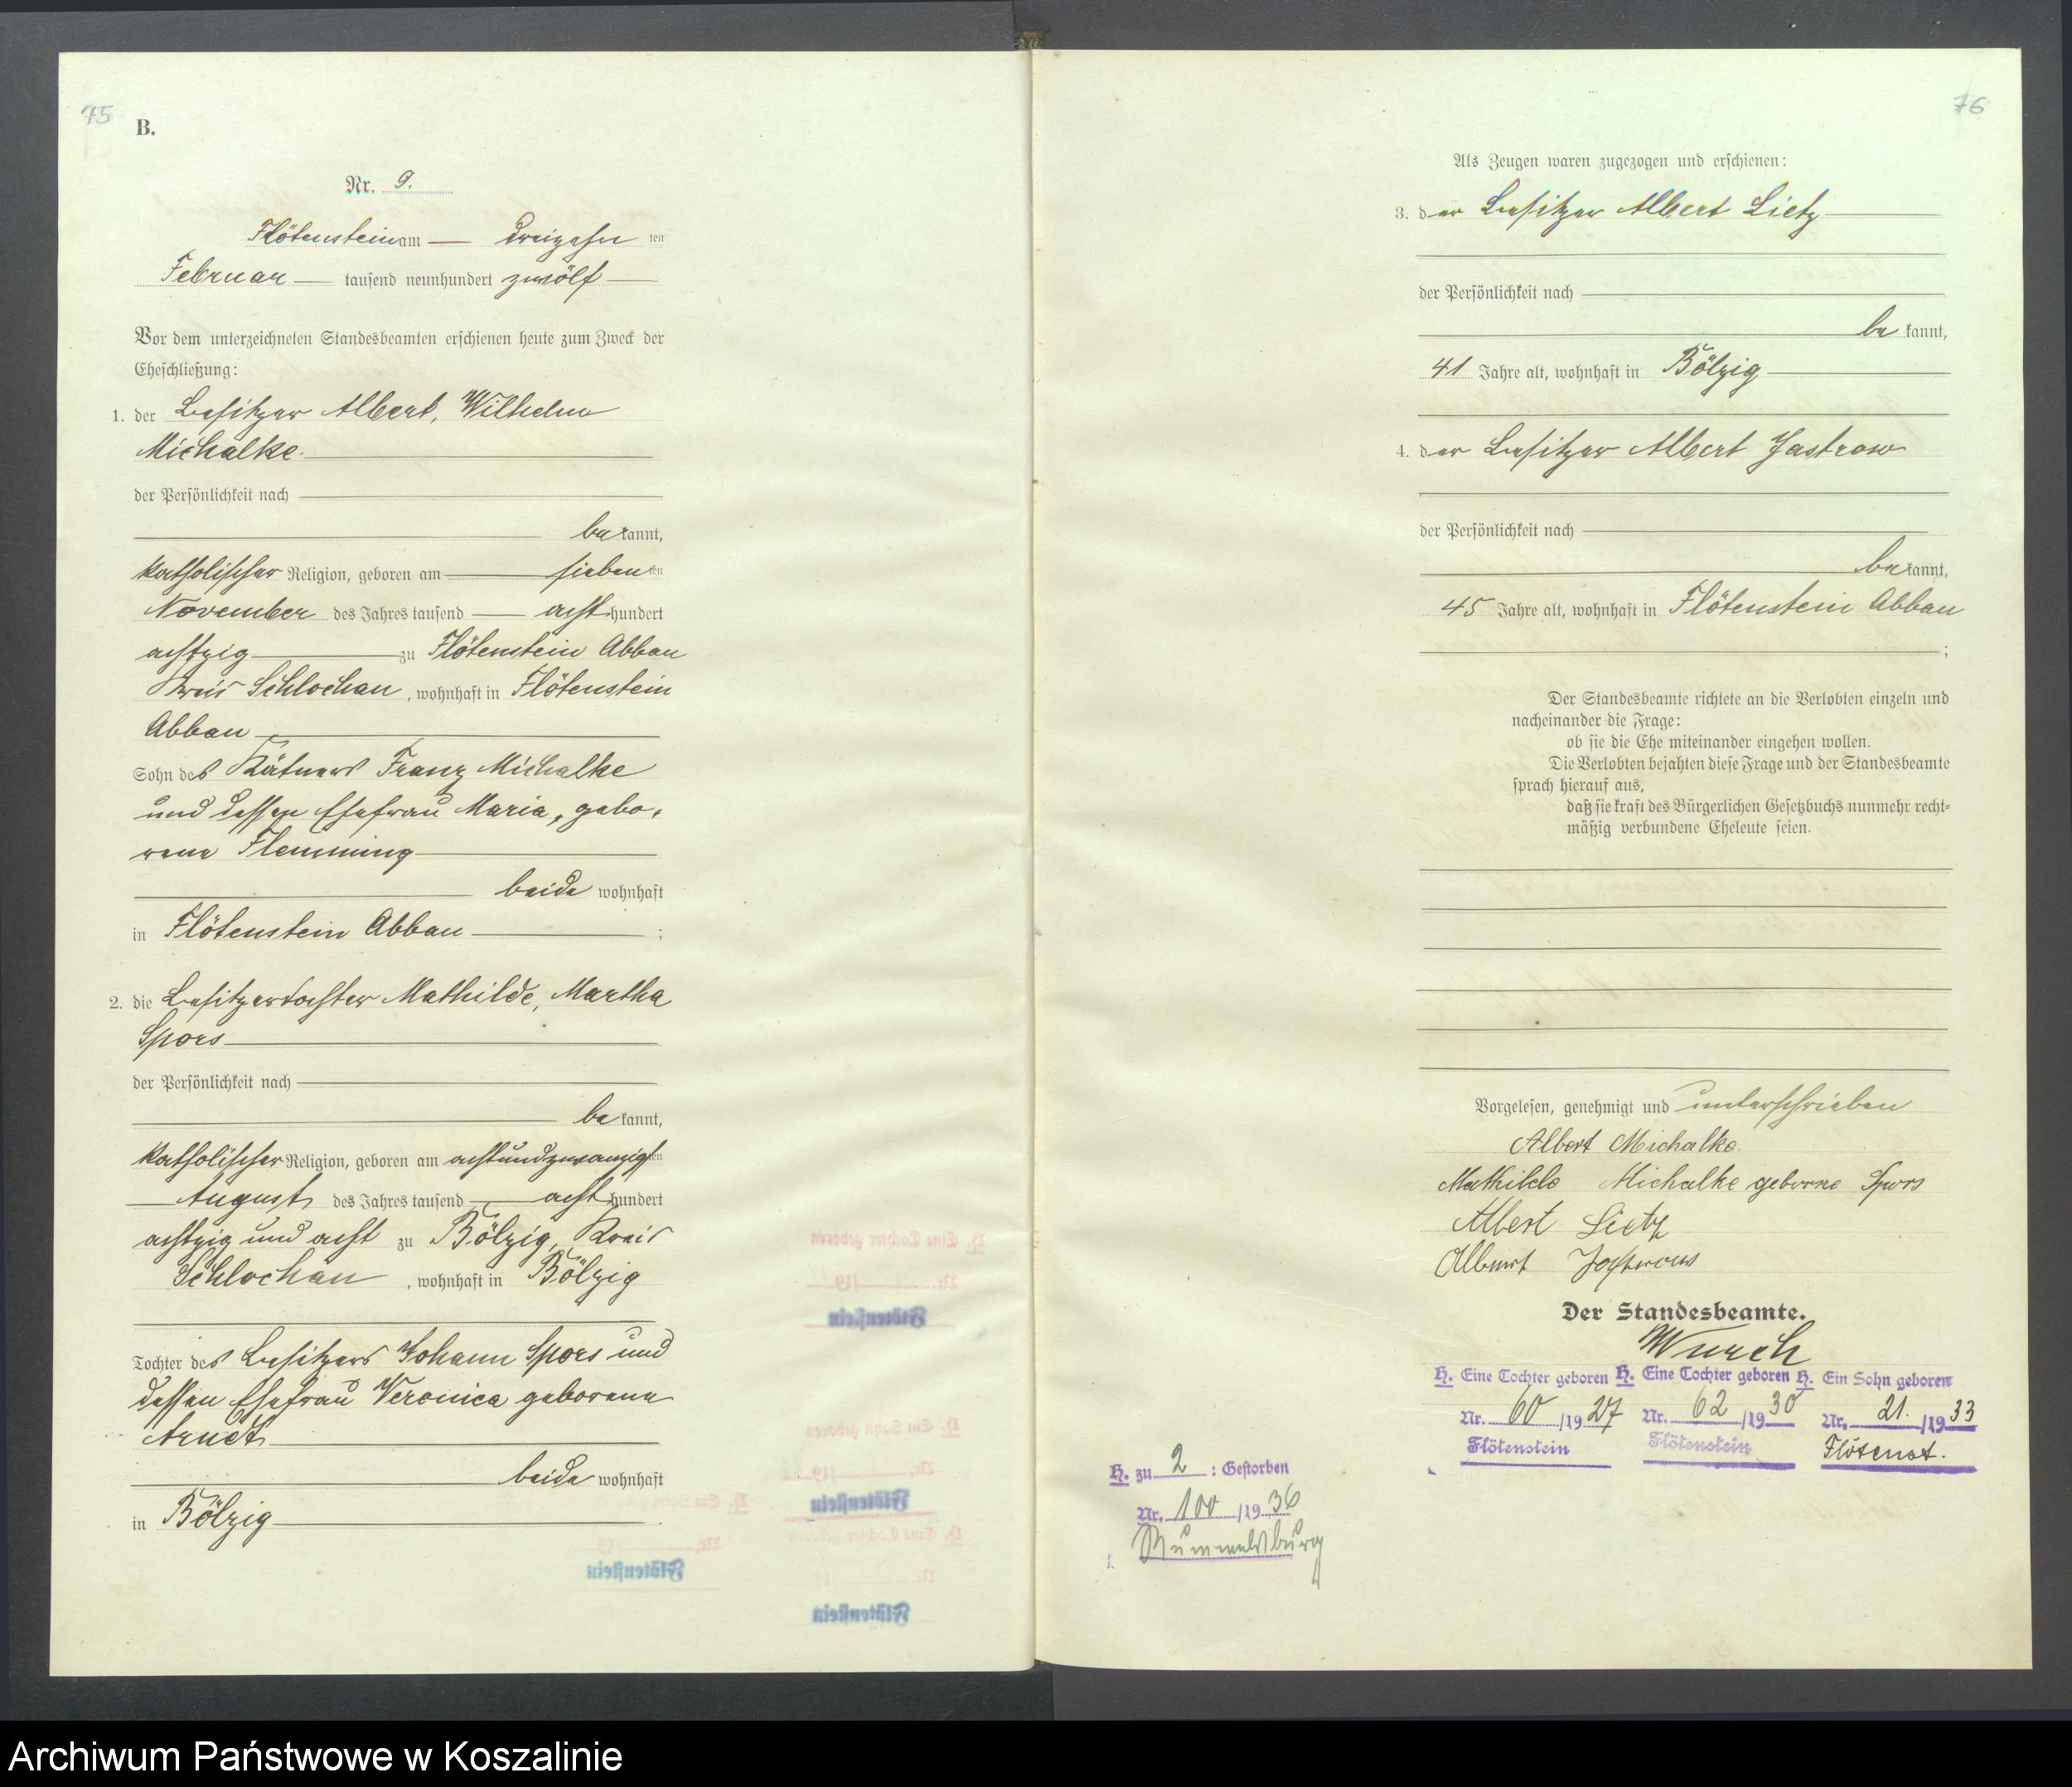 75
B.
Nr. 9.
Flötenstein am — dreizehn ten
Februar — tausend neunhundert zwölf —
Vor dem unterzeichneten Standesbeamten erschienen heute zum Zweck der
Eheschließung:
1. der Besitzer Albert, Wilhelm
Michalke.
der Persönlichkeit nach
be kannt,
katholischer Religion, geboren am — sieben ten
November des Jahres tausend — acht hundert
achtzig — zu Flötenstein Abbau
Kreis Schlochau, wohnhaft in Flötenstein
Abbau
Sohn des Kätners Franz Michalke
und dessen Ehefrau Maria, gebo-
rene Flemming
beide wohnhaft
in Flötenstein Abbau ;
2. die Besitzertochter Mathilde, Martha
Spors
der Persönlichkeit nach
be kannt,
katholischer Religion, geboren am achtundzwanzigsten
— August des Jahres tausend — acht hundert
achtzig und acht zu Bölzig, Kreis
Schlochau, wohnhaft in Bölzig
Tochter des Besitzers Johann Spors und
dessen Ehefrau Veronica geborene
Arndt
beide wohnhaft
in Bölzig
76
Als Zeugen waren zugezogen und erschienen:
3. der Besitzer Albert Lietz
der Persönlichkeit nach
be kannt,
41 Jahre alt, wohnhaft in Bölzig
4. der Besitzer Albert Jastrow
der Persönlichkeit nach
be kannt,
45 Jahre alt, wohnhaft in Flötenstein Abbau
;
Der Standesbeamte richtete an die Verlobten einzeln und
nacheinander die Frage:
ob sie die Ehe miteinander eingehen wollen.
Die Verlobten bejahten diese Frage und der Standesbeamte
sprach hierauf aus,
daß sie kraft des Bürgerlichen Gesetzbuchs nunmehr recht-
mäßig verbundene Eheleute seien.
Vorgelesen, genehmigt und unterschrieben
Albert Michalke.
Mathilde Michalke geborne Spors
Albert Lietz
Albert Jastrow
Der Standesbeamte.
H. Eine Tochter geboren
Nr. 60/1927
Flötenstein
H. Eine Tochter geboren
Nr. 62/1930
Flötenstein
H. Ein Sohn geboren
Nr. 21./1933
Flötenst.
H. zu 2 : Gestorben
Nr. 100/1936
Rummelsburg
Archiwum Państwowe w Koszalinie